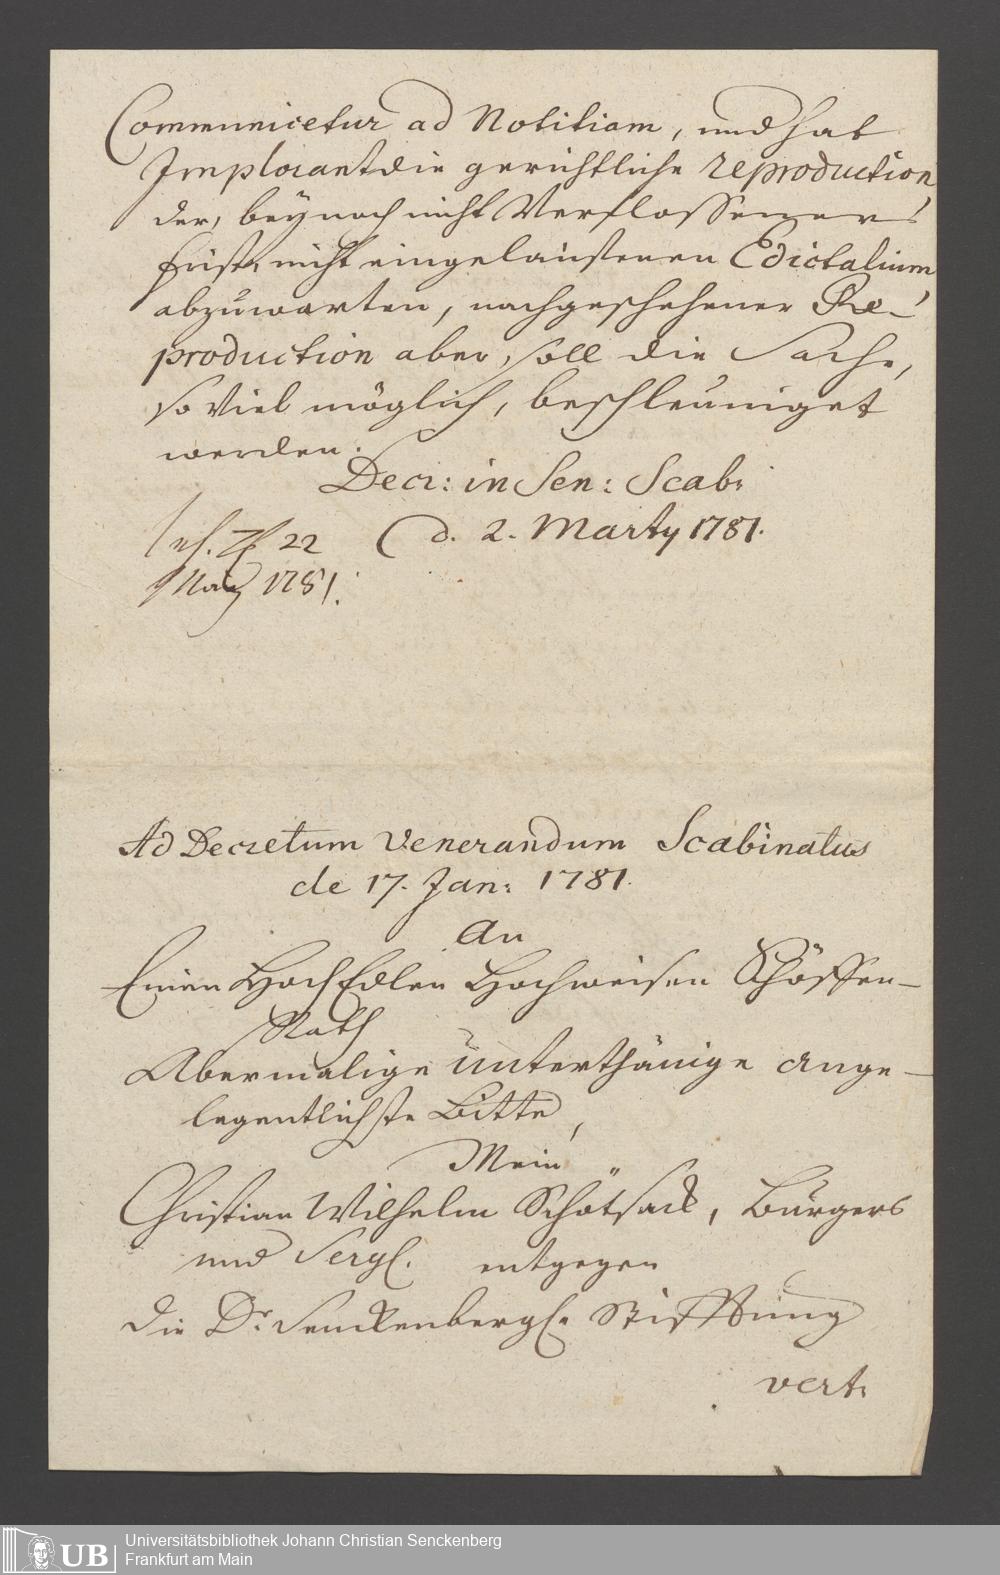 Communicetur ad Notitiam, und hat
Implorant die gerichtliche reproduction
der, bey noch nicht Verflossener
frist, nicht eingelaufenen Edictalium
abzuwarten, nach geschehener Re-
production aber, soll die Sache,
so viel möglich, beschleuniget
werden.
Decr: in Sen: Scab:
d. 2. Marty 1781.
22
1781.
Ad Decretum Venerandum Scabinatus
de 17. Jan: 1781.
An
Einen HochEdlen Hochweisen Schöffen-
Rath
Abermalige unterthänige ange-
legentlichste Bitte,
Mein
Christian Wilhelm Schötsack, Burgers
und entgegen
die Dr. Senckenbergl. Stifftung
vert:
UB
Universitätsbibliothek Johann Christian Senckenberg
Frankfurt am Main